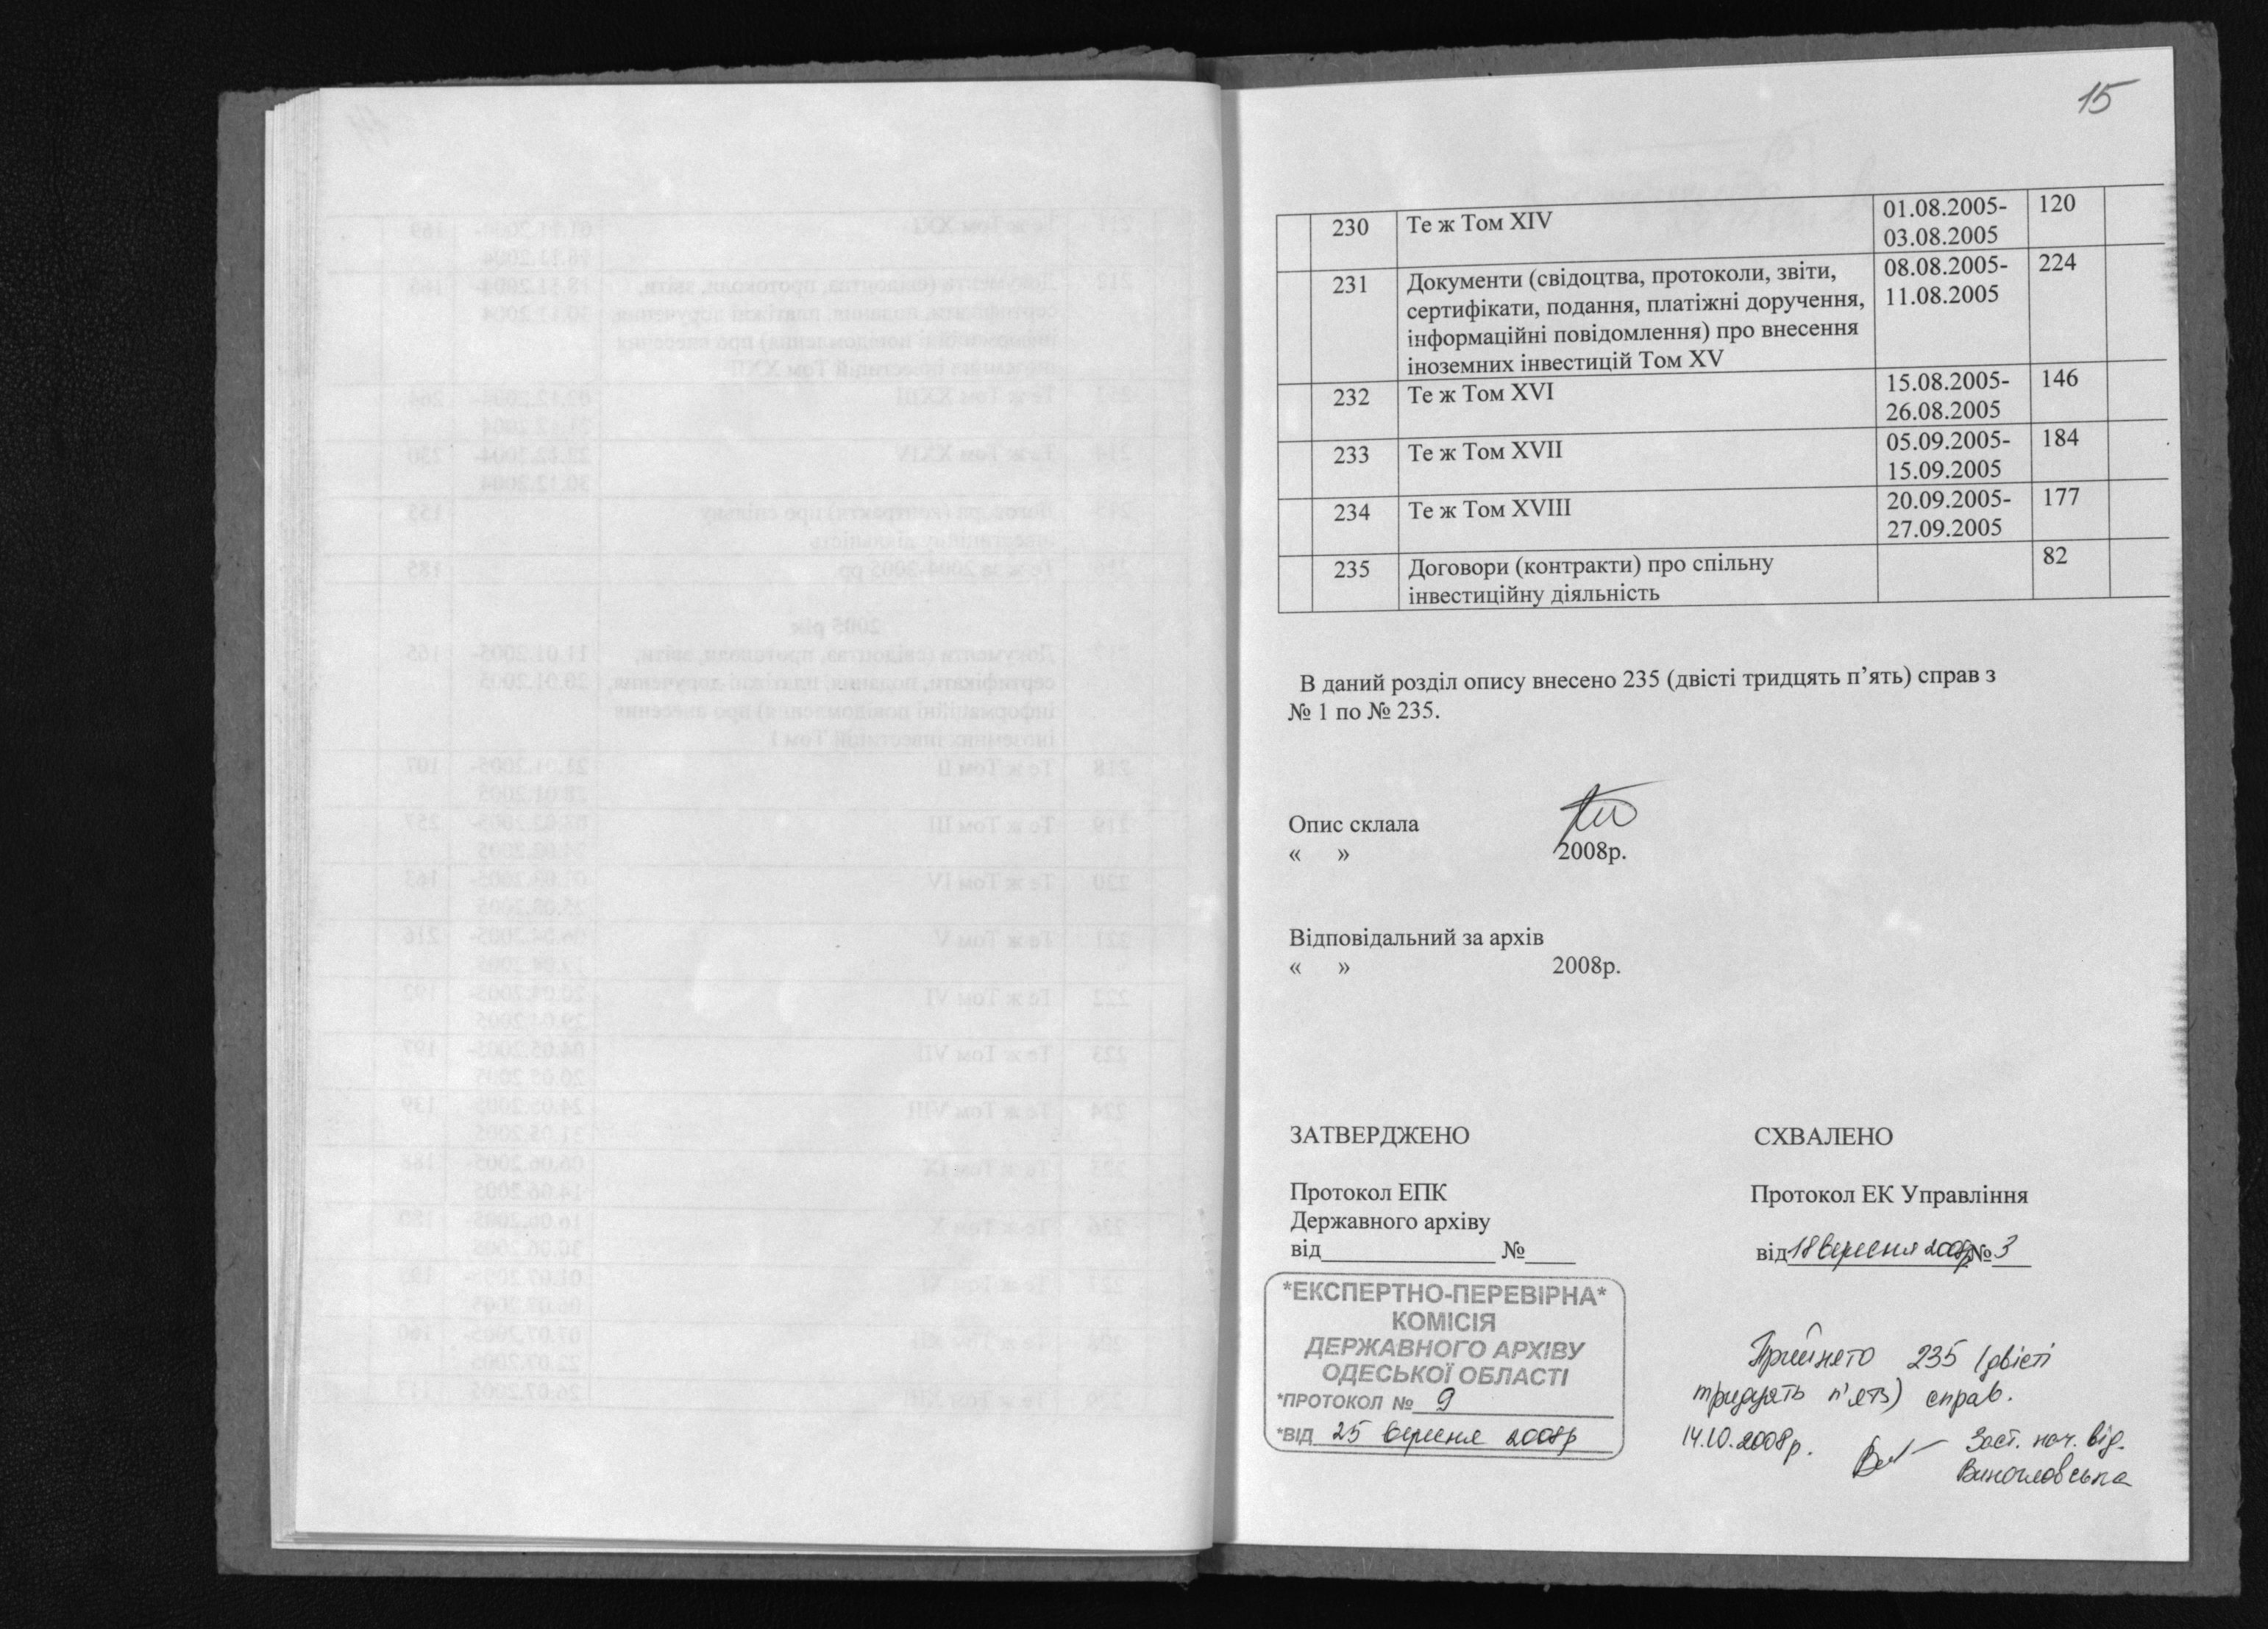 15
230 Те ж Том XIV 01.08.2005- 120
03.08.2005
231 Документи (свідоцтва, протоколи, звіти, 08.08.2005- 224
сертифікати, подання, платіжні доручення, 11.08.2005
інформаційні повідомлення) про внесення
іноземних інвестицій Том XV
232 Те ж Том XVI 15.08.2005- 146
26.08.2005
233 Те ж Том XVII 05.09.2005- 184
15.09.2005
234 Те ж Том XVIII 20.09.2005- 177
27.09.2005
235 Договори (контракти) про спільну 82
інвестиційну діяльність
В даний розділ опису внесено 235 (двісті тридцять п’ять) справ з
№ 1 по № 235.
Опис склала
« » 2008р.
Відповідальний за архів
« » 2008р.
ЗАТВЕРДЖЕНО
Протокол ЕПК
Державного архіву
від______________ №____
СХВАЛЕНО
Протокол ЕК Управління
від 18 вересня 2008р № 3
*ЕКСПЕРТНО-ПЕРЕВІРНА*
КОМІСІЯ
ДЕРЖАВНОГО АРХІВУ
ОДЕСЬКОЇ ОБЛАСТІ
*ПРОТОКОЛ № 9
*ВІД 25 вересня 2008р
Прийнято 235 (двісті
тридцять п'ять) справ.
14.10.2008р. Заст. нач. від.